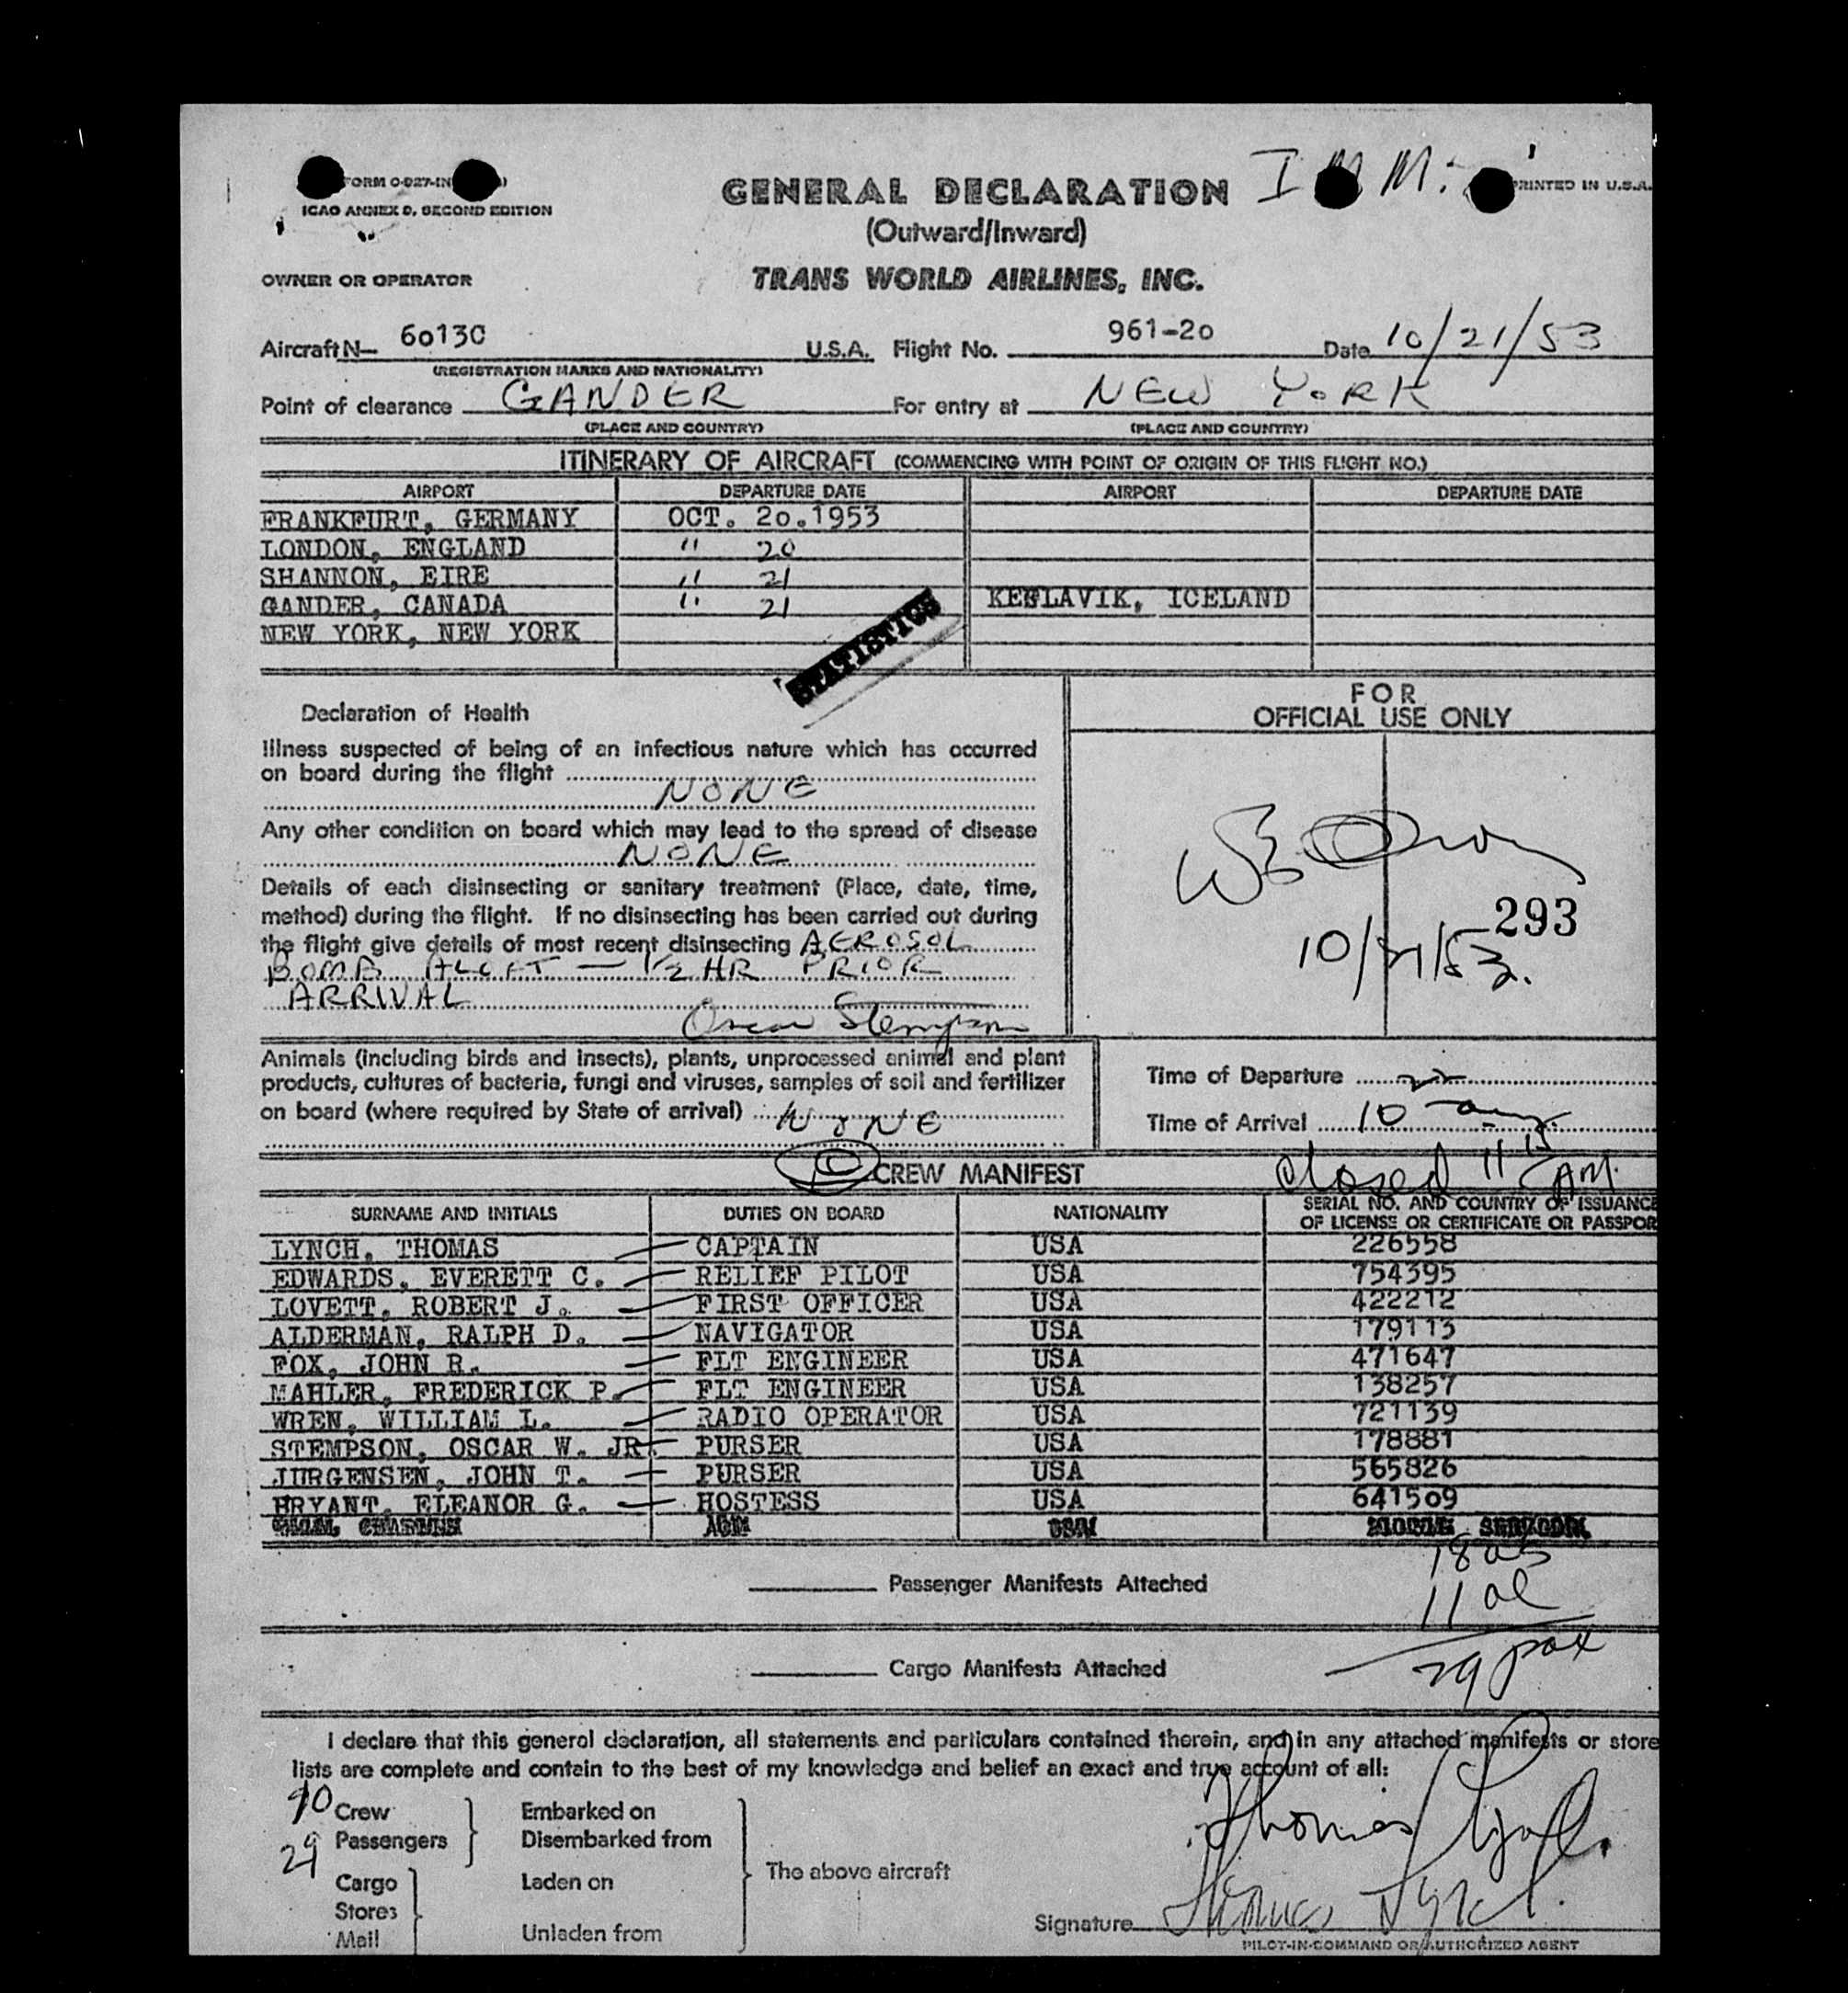 FORM O-927-IN
ICAO ANNEX 9, SECOND EDITION
GENERAL DECLARATION
(Outward/Inward)
PRINTED IN U.S.A.
OWNER OR OPERATOR
TRANS WORLD AIRLINES, INC.
Aircraft N— 6013C U.S.A. Flight No. 961-20 Date 10/21/53
(REGISTRATION MARKS AND NATIONALITY)
Point of clearance GANDER For entry at NEW YORK
(PLACE AND COUNTRY) (PLACE AND COUNTRY)
ITINERARY OF AIRCRAFT (COMMENCING WITH POINT OF ORIGIN OF THIS FLIGHT NO.)
AIRPORT DEPARTURE DATE AIRPORT DEPARTURE DATE
FRANKFURT, GERMANY OCT. 20.1953
LONDON, ENGLAND " 20
SHANNON, EIRE " 21
GANDER, CANADA " 21 KEFLAVIK, ICELAND
NEW YORK, NEW YORK
STATISTICS
Declaration of Health
FOR
OFFICIAL USE ONLY
Illness suspected of being of an infectious nature which has occurred
on board during the flight
NONE
Any other condition on board which may lead to the spread of disease
NONE
Details of each disinsecting or sanitary treatment (Place, date, time,
method) during the flight. If no disinsecting has been carried out during
the flight give details of most recent disinsecting AEROSOL
BOMB ALOFT — 1/2 HR PRIOR
ARRIVAL
Oscar Stempson
293
10/21/53.
Animals (including birds and insects), plants, unprocessed animal and plant
products, cultures of bacteria, fungi and viruses, samples of soil and fertilizer
on board (where required by State of arrival) NONE
Time of Departure
Time of Arrival 10
closed 11 15 AM.
CREW MANIFEST
SURNAME AND INITIALS DUTIES ON BOARD NATIONALITY SERIAL NO. AND COUNTRY OF ISSUANCE
OF LICENSE OR CERTIFICATE OR PASSPOR
LYNCH, THOMAS CAPTAIN USA 226558
EDWARDS, EVERETT C. RELIEF PILOT USA 754395
LOVETT, ROBERT J. FIRST OFFICER USA 422212
ALDERMAN, RALPH D. NAVIGATOR USA 179113
FOX, JOHN R. FLT ENGINEER USA 471647
MAHLER, FREDERICK P. FLT ENGINEER USA 138257
WREN, WILLIAM L. RADIO OPERATOR USA 721139
STEMPSON, OSCAR W. JR. PURSER USA 178881
JURGENSEN, JOHN T. PURSER USA 565826
BRYANT, ELEANOR G. HOSTESS USA 641509
Passenger Manifests Attached
18 us
11 al
29 pax
Cargo Manifests Attached
I declare that this general declaration, all statements and particulars contained therein, and in any attached manifests or store
lists are complete and contain to the best of my knowledge and belief an exact and true account of all:
10 Crew
29 Passengers
Embarked on
Disembarked from
Cargo
Stores
Mail
Laden on
Unladen from
The above aircraft
Thomas Lynch.
Signature Thomas Lynch.
PILOT-IN-COMMAND OR AUTHORIZED AGENT